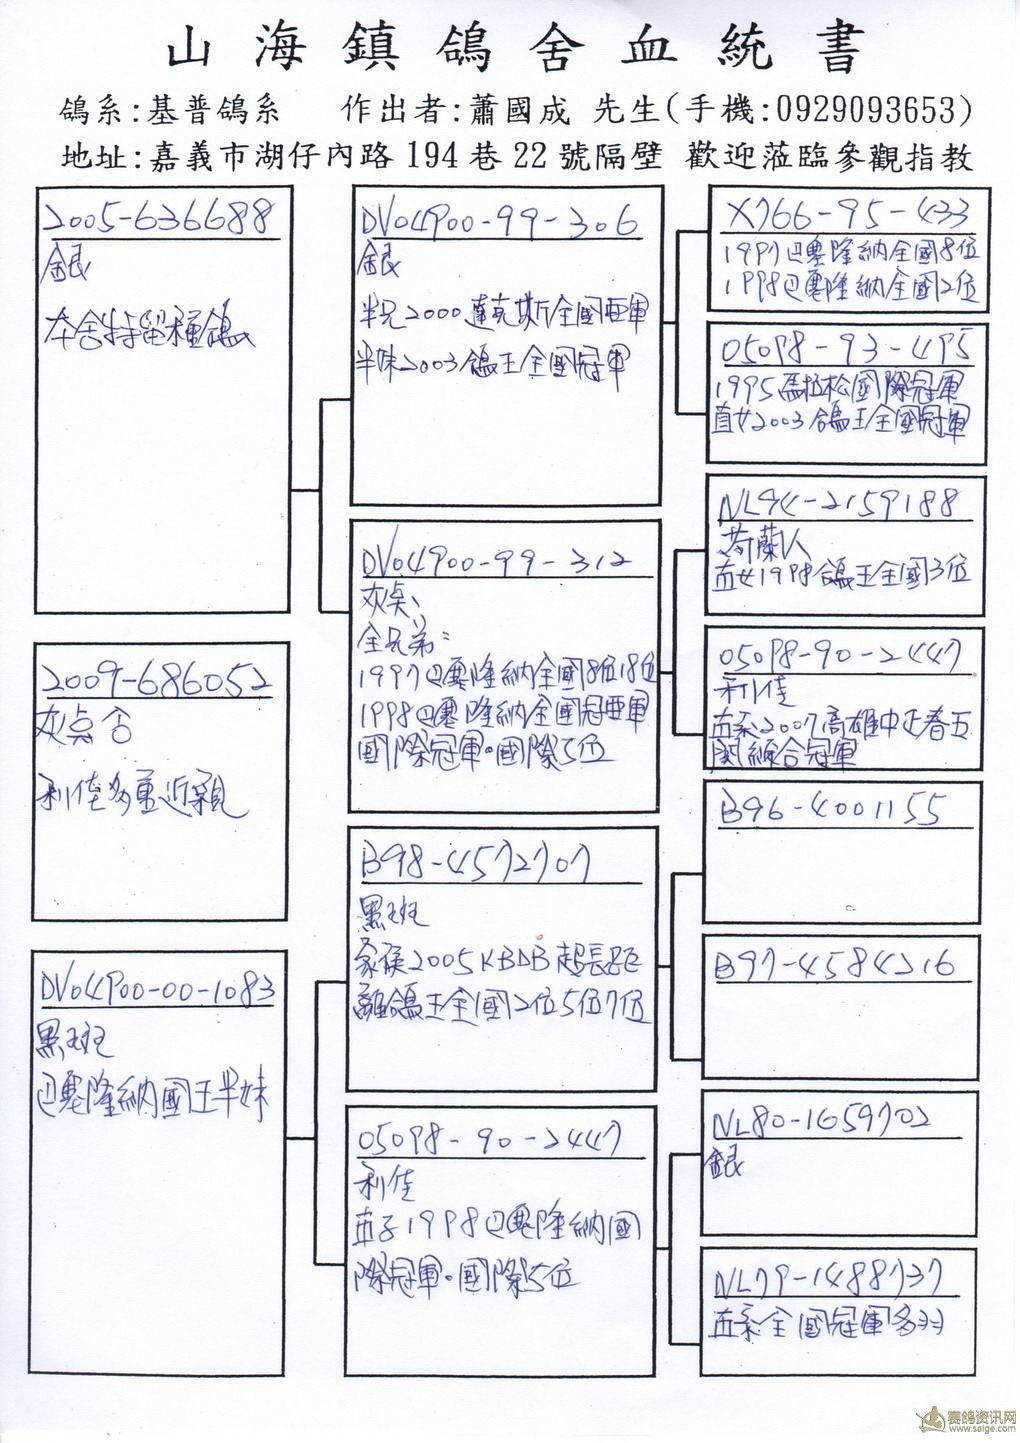 山海鎮鴿舍血統書
鴿系:基普鴿系 作出者:蕭國成 先生(手機:0929093653)
地址:嘉義市湖仔內路194巷22號隔壁 歡迎蒞臨參觀指教
2005-636688
銀
本舍特留種鴿
2009-686052
灰白
利佳多重近親
DV04900-00-1083
黑斑
巴塞隆納國王半妹
DV04900-99-306
銀
半兄2000達克斯全國亞軍
半妹2003鴿王全國冠軍
DV04900-99-312
灰
全兄弟:
1997巴塞隆納全國8位18位
1998巴塞隆納全國冠亞軍
國際冠軍·國際5位
B98-4572707
黑斑
家族2005KBDB超長距
離鴿王全國2位5位7位
05098-90-2447
利佳
直子1998巴塞隆納國
際冠軍·國際5位
X766-95-433
1997巴塞隆納全國8位
1998巴塞隆納全國2位
05098-93-495
1995馬拉松國際冠軍
直女2003鴿王全國冠軍
NL94-2159188
荷蘭人
直女1998鴿王全國3位
05098-90-2447
利佳
直系2007高雄中正春五
關綜合冠軍
B96-4001155
B97-4584216
NL80-1659702
銀
NL79-1488737
直系全國冠軍多羽
赛鸽资讯网
www.saige.com